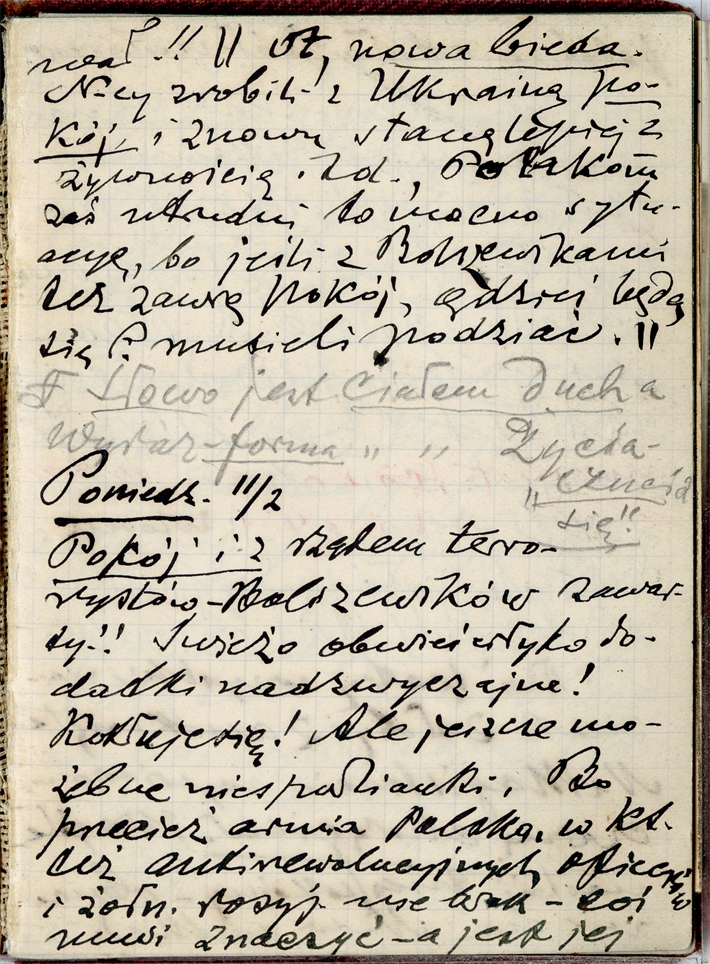 wał!! || Ot, nowa bieda.
N-cy zrobili z Ukrainą po-
kój, i znowu staną lepiej z
żywnością itd., Polakom
zaś utrudni to mocno sytu-
acyę, bo jeśli z Bolszewikami
też zawrą pokój, gdzieś będą
się P. musieli podziać. ||
Słowo jest Ciałem Ducha
Wyraz-forma " " Życia-
"czucia
się"!
Poniedz. 11/2
Pokój i z rządem terro-
rystów-Bolszewików zawar-
ty!! Świeżo obwieściły to do-
datki nadzwyczajne!
Kotłuje się! Ale jeszcze mo-
żebne niespodzianki. Bo
przecież armia Polska, w kt.
też antirewolucyjnych oficerów
i żołn. rosyj. nie brak - coś
musi znaczyć - a jest jej